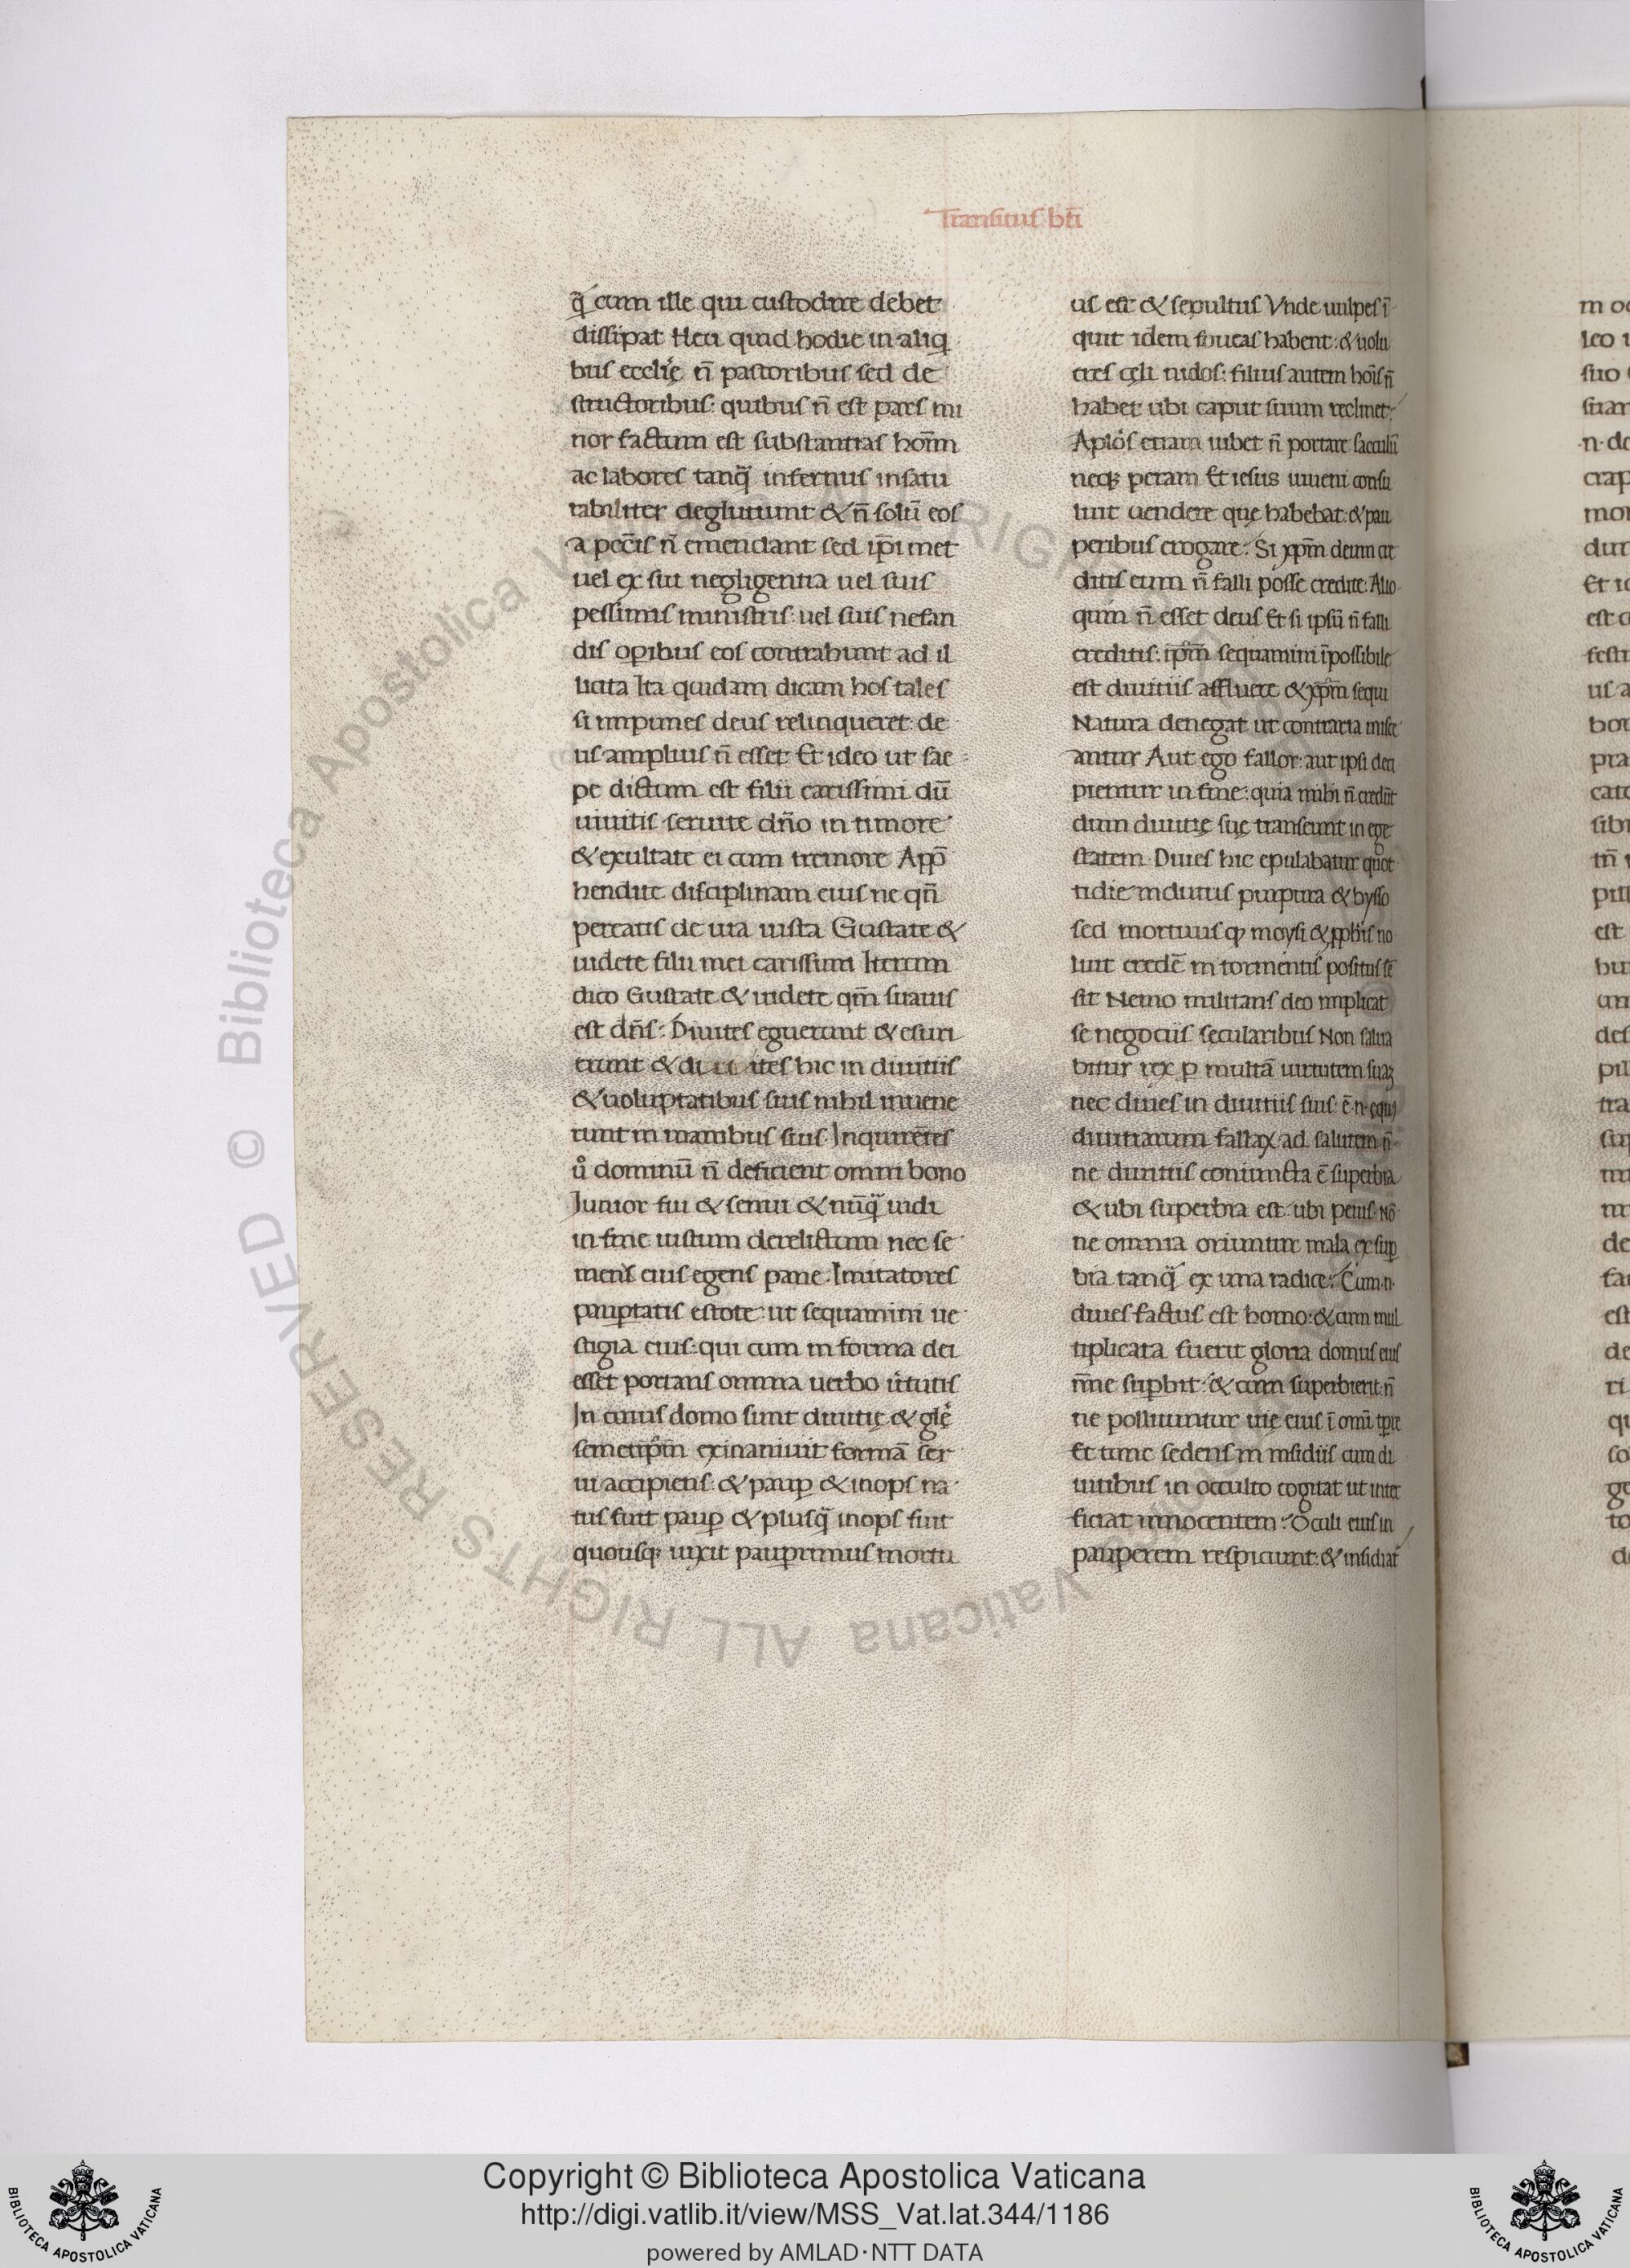 Transitus bti
q̃ cum ille qui custodire debet
dissipat Heu quid hodie in aliq
bus ecclię n̄ pastoribus sed de
structoribus: quibus n̄ est pars mi
nor factum est substantias hom̄
ac labores tanq̃ infernus insatu
rabiliter deglutiunt & n̄ solū eos
a pccīs n̄ emendant sed ip̄imet
uel ex sui negligentia uel suis
pessimis ministris: uel suis nefan
dis opibus eos contrahunt ad il
licita Ita quidam dicam hos tales
si impunes deus relinqueret: de
us amplius n̄ esset Et ideo ut sae
pe dictum est filii carissimi dū
uiuitis seruite dn̄o in timore
& exultate ei cum tremore App̄
hendite disciplinam eius ne qn̄
pereatis de uia iusta Gustate &
uidete filii mei carissimi Iterum
dico Gustate & uidete qm̄ suauis
est dn̄s: Diuites eguerunt & esuri
erunt & di ui ites hic in diuitiis
& uoluptatibus suis nihil inuene
runt in manibus suis Inquirētes
ů dominū n̄ deficient omni bono
Junior fui & senui & nūq̃ uidi
in fine iustum derelictum nec se
mens eius egens pane. Imitatores
pauptatis estote: ut sequamini ue
stigia eius: qui cum in forma dei
esset portans omnia uerbo ututis
In cuius domo sunt diuitię & glę
semetip̄m exinaniuit formā ser
ui accipiens: & paup & inops na
tus fuit paup & plusq̃ inops fuit
quousq; uixit paupimus mortu
us est & sepultus Vnde uulpes ī
quit idem foueas habent: & uolu
cres cęli nidos: filius autem hoīs n̄
habet ubi caput suum reclinet:
Aplōs etiam iubet n̄ portare sacculū
neq; peram Et iesus iuueni consu
luit uendere que habebat: & pau
peribus erogare: Si xp̄m deum cre
ditis eum n̄ falli posse credite: Alio
quin n̄ esset deus Et si ipsū n̄ falli
creditis: ip̄m sequamini īpossibile
est diuitiis affluere & xp̄m sequi
Natura denegat ut contraria misce
antur Aut ego fallor: aut ipsi deci
pientur in fine: quia mihi n̄ credūt
dum diuitię suę transeunt in ege
statem. Diues hic epulabatur quot
tidie indutus purpura & bysso
sed mortuus q moysi & pphīs no
luit credē in tormentis positus sē
sit Nemo militans deo implicat
se negociis secularibus Non salua
bitur rex p multā uirtutem suaȝ
nec diues in diuitiis suis: ē.n. equs
diuitiarum fallax ad salutem n̄
ne diuitiis coniuncta ē superbia
& ubi superbia est: ubi peius: Nō
ne omnia oriuntur mala ex sup
bia tanq̃ ex una radice: Cum.n.
diues factus est homo: & cum mul
tiplicata fuerit gloria domus eius
n̄ne supbit: & cum superbierit: n̄
ne polluuntur uię eius ī omi tpre
Et tunc sedens in insidiis cum di
uitibus in occulto cogitat ut inter
ficiat innocentem: Oculi eius in
pauperem respiciunt: & insidiat̄
Copyright © Biblioteca Apostolica Vaticana
http://digi.vatlib.it/view/MSS_Vat.lat.344/1186
powered by AMLAD·NTT DATA